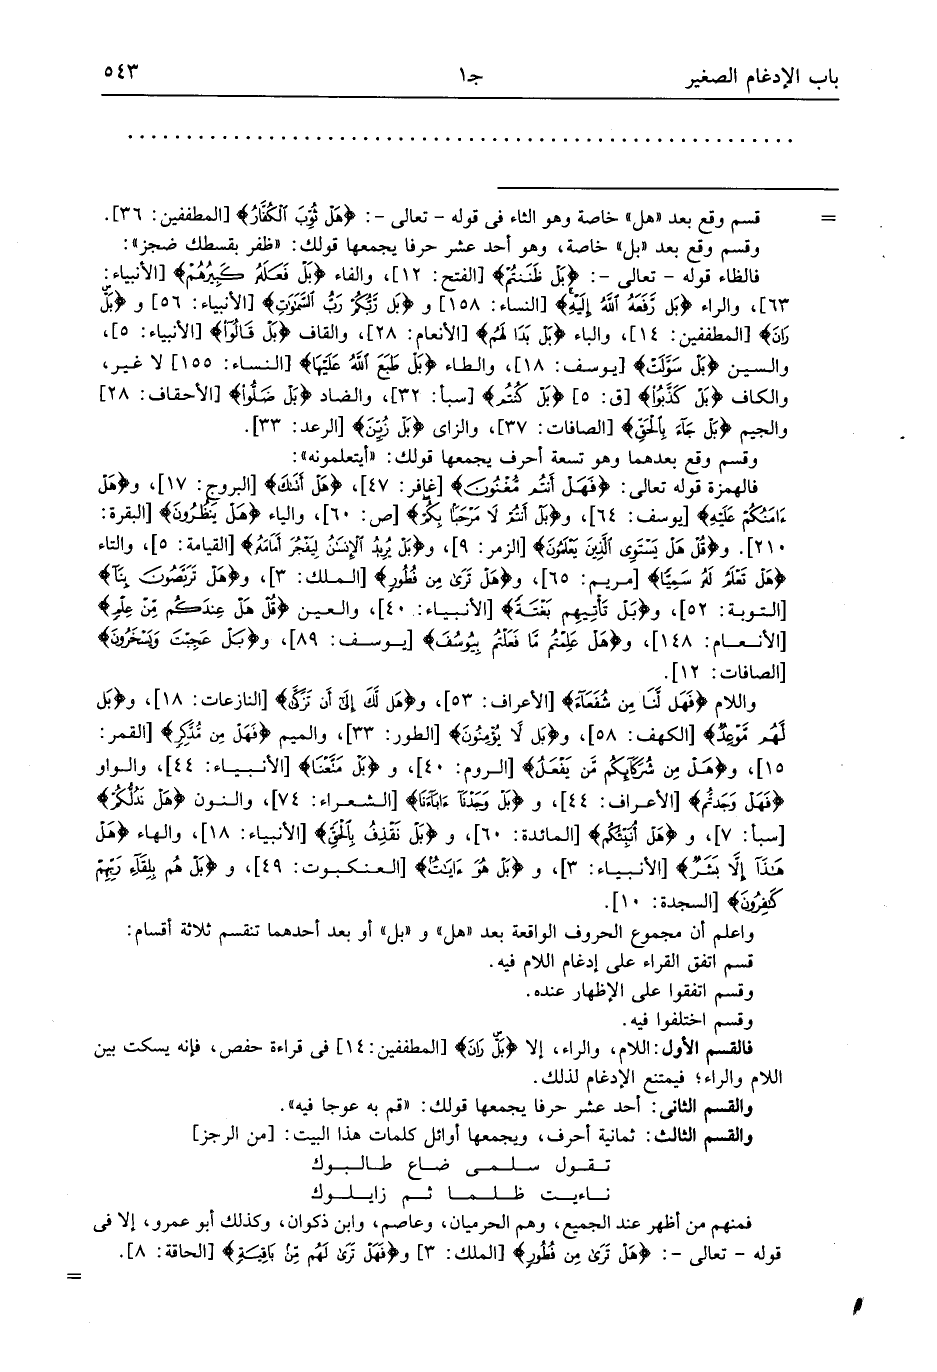 باب الإدغام الصغير جـ١ ٥٤٣
= قسم وقع بعد «هل» خاصة وهو الثاء فى قوله - تعالى -: ﴿هَلْ ثُوِّبَ ٱلْكُفَّارُ﴾ [المطففين: ٣٦].
وقسم وقع بعد «بل» خاصة، وهو أحد عشر حرفا يجمعها قولك: «ظفر بقسطك ضجز»:
فالظاء قوله - تعالى -: ﴿بَلْ ظَنَنتُمْ﴾ [الفتح: ١٢]، والفاء ﴿بَلْ فَعَلَهُ كَبِيرُهُمْ﴾ [الأنبياء:
٦٣]، والراء ﴿بَل رَّفَعَهُ اللَّهُ إِلَيْهِ﴾ [النساء: ١٥٨] و ﴿بَل رَّبُّكُمْ رَبُّ السَّمَوَاتِ﴾ [الأنبياء: ٥٦] و ﴿بَلْ
رَانَ﴾ [المطففين: ١٤]، والباء ﴿بَلْ بَدَا لَهُم﴾ [الأنعام: ٢٨]، والقاف ﴿بَلْ قَالُوا﴾ [الأنبياء: ٥]،
والسين ﴿بَلْ سَوَّلَتْ﴾ [يوسف: ١٨]، والطاء ﴿بَلْ طَبَعَ اللَّهُ عَلَيْهَا﴾ [النساء: ١٥٥] لا غير،
والكاف ﴿بَلْ كَذَّبُوا﴾ [ق: ٥] ﴿بَلْ كُنتُم﴾ [سبأ: ٣٢]، والضاد ﴿بَلْ ضَلُّوا﴾ [الأحقاف: ٢٨]
والجيم ﴿بَلْ جَآءَ بِالْحَقِّ﴾ [الصافات: ٣٧]، والزاى ﴿بَلْ زُيِّنَ﴾ [الرعد: ٣٣].
وقسم وقع بعدهما وهو تسعة أحرف يجمعها قولك: «أيتعلمونه»:
فالهمزة قوله تعالى: ﴿فَهَلْ أَنتُم مُّغْنُونَ﴾ [غافر: ٤٧]، ﴿هَلْ أَتَىٰكَ﴾ [البروج: ١٧]، و﴿هَلْ
ءَامَنُكُمْ عَلَيْهِ﴾ [يوسف: ٦٤]، و﴿بَلْ أَنتُمْ لَا مَرْحَبًا بِكُمْ﴾ [ص: ٦٠]، والياء ﴿هَلْ يَنظُرُونَ﴾ [البقرة:
٢١٠]. و﴿قُلْ هَلْ يَسْتَوِى الَّذِينَ يَعْلَمُونَ﴾ [الزمر: ٩]، و﴿بَلْ يُرِيدُ الْإِنسَٰنُ لِيَفْجُرَ أَمَامَهُ﴾ [القيامة: ٥]، والتاء
﴿هَلْ تَعْلَمُ لَهُ سَمِيًّا﴾ [مريم: ٦٥]، و﴿هَلْ تَرَىٰ مِن فُطُورٍ﴾ [الملك: ٣]، و﴿هَلْ تَرَبَّصُونَ بِنَآ﴾
[التوبة: ٥٢]، و﴿بَلْ تَأْتِيهِم بَغْتَةً﴾ [الأنبياء: ٤٠]، والعين ﴿قُلْ هَلْ عِندَكُم مِّنْ عِلْمٍ﴾
[الأنعام: ١٤٨]، و﴿هَلْ عَلِمْتُم مَّا فَعَلْتُم بِيُوسُفَ﴾ [يوسف: ٨٩]، و﴿بَلْ عَجِبْتَ وَيَسْخَرُونَ﴾
[الصافات: ١٢].
واللام ﴿فَهَل لَّنَا مِن شُفَعَآءَ﴾ [الأعراف: ٥٣]، و﴿هَل لَّكَ إِلَىٰ أَن تَزَكَّىٰ﴾ [النازعات: ١٨]، و﴿بَل
لَّهُم مَّوْعِدٌ﴾ [الكهف: ٥٨]، و﴿بَل لَّا يُؤْمِنُونَ﴾ [الطور: ٣٣]، والميم ﴿فَهَلْ مِن مُّدَّكِرٍ﴾ [القمر:
١٥]، و﴿هَلْ مِن شُرَكَآئِكُم مَّن يَفْعَلُ﴾ [الروم: ٤٠]، و ﴿بَلْ مَتَّعْنَا﴾ [الأنبياء: ٤٤]، والواو
﴿فَهَلْ وَجَدتُّم﴾ [الأعراف: ٤٤]، و ﴿بَلْ وَجَدْنَآ ءَابَآءَنَا﴾ [الشعراء: ٧٤]، والنون ﴿هَلْ نَدُلُّكُمْ﴾
[سبأ: ٧]، و ﴿هَلْ أُنَبِّئُكُم﴾ [المائدة: ٦٠]، و ﴿بَلْ نَقْذِفُ بِالْحَقِّ﴾ [الأنبياء: ١٨]، والهاء ﴿هَلْ
هَٰذَآ إِلَّا بَشَرٌ﴾ [الأنبياء: ٣]، و ﴿بَلْ هُوَ ءَايَٰتٌ﴾ [العنكبوت: ٤٩]، و ﴿بَلْ هُم بِلِقَآءِ رَبِّهِمْ
كَٰفِرُونَ﴾ [السجدة: ١٠].
واعلم أن مجموع الحروف الواقعة بعد «هل» و «بل» أو بعد أحدهما تنقسم ثلاثة أقسام:
قسم اتفق القراء على إدغام اللام فيه.
وقسم اتفقوا على الإظهار عنده.
وقسم اختلفوا فيه.
فالقسم الأول: اللام، والراء، إلا ﴿بَلْ رَانَ﴾ [المطففين: ١٤] فى قراءة حفص، فإنه يسكت بين
اللام والراء؛ فيمتنع الإدغام لذلك.
والقسم الثانى: أحد عشر حرفا يجمعها قولك: «قم به عوجا فيه».
والقسم الثالث: ثمانية أحرف، ويجمعها أوائل كلمات هذا البيت: [من الرجز]
تـقـول سـلـمـى ضـاع طـالـبـوك
نـاءيـت ظـلـمـا ثـم زايـلـوك
فمنهم من أظهر عند الجميع، وهم الحرميان، وعاصم، وابن ذكوان، وكذلك أبو عمرو، إلا فى
قوله - تعالى -: ﴿هَلْ تَرَىٰ مِن فُطُورٍ﴾ [الملك: ٣] و﴿فَهَلْ تَرَىٰ لَهُم مِّنۢ بَاقِيَةٍ﴾ [الحاقة: ٨].
=